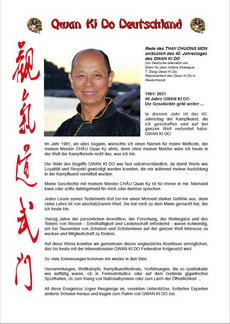 Qwan Ki Do Deutschland
Rede des THAY CHUONG MON
anlässlich des 40. Jahrestages
des QWAN KI DO
(ins Deutsche übersetzt von
1981/ 2021
40 Jahre QWAN KI DO:
Die Geschichte geht weiter ...
In diesem Jahr ist der 40.
Jahrestag der Kampfkunst, die
ich geschaffen und auf der
ganzen Welt verbreitet habe:
QWAN KI DO.
觀氣道武門
Im Jahr 1981, als alles begann, wünschte ich einen Namen für meine Methode, der
meinen Meister CHÂU Quan Ky ehrte, denn ohne meinen Meister wäre ich heute in
der Welt der Kampfkünste nicht das, was ich bin.
Die Wahl des Begriffs QWAN KI DO war fast selbstverständlich, da damit Werte wie
Loyalität und Respekt gewürdigt werden konnten, die mir während meiner Ausbildung
in der Kampfkunst vermittelt wurden.
Meine Geschichte mit meinem Meister CHÂU Quan Ky ist für immer in mir. Niemand
kann oder sollte dahingehend für mich oder darüber sprechen.
Jedes Lesen seines Testaments löst bei mir einen Moment starker Gefühle aus, denn
seine Lehre ist von unschätzbarem Wert. Sie hat mich zu dem Mann gemacht, der ich
heute bin.
Vierzig Jahre der persönlichen Investition, der Forschung, der Weitergabe und des
Teilens von Wissen - Ernsthaftigkeit und Leidenschaft erfordernd - waren notwendig,
um bei Tausenden von Schülern und Schülerinnen auf der ganzen Welt Interesse zu
wecken und Mitgliedschaft zu fördern.
Auf diese Weise konnten wir gemeinsam dieses unglaubliche Abenteuer ermöglichen,
das bis heute mit der Internationalen QWAN KI DO Federation fortgesetzt wird.
So viele Erinnerungen kommen mir wieder in den Sinn.
Versammlungen, Wettkämpfe, Kampfkunstfestivals, Vorführungen, die so spektakulär
wie auffällig waren, ob in Fernsehstudios oder auf dem Gelände gigantischer
Sporthallen, ob zum Klang von Nationalhymnen oder zum Lärm der Öffentlichkeit.
All diese Ereignisse zogen Neugierige an, vereinten Unterstützer, forderten Experten
anderer Schulen heraus und trugen zum Ruhm von QWAN KI DO bei.